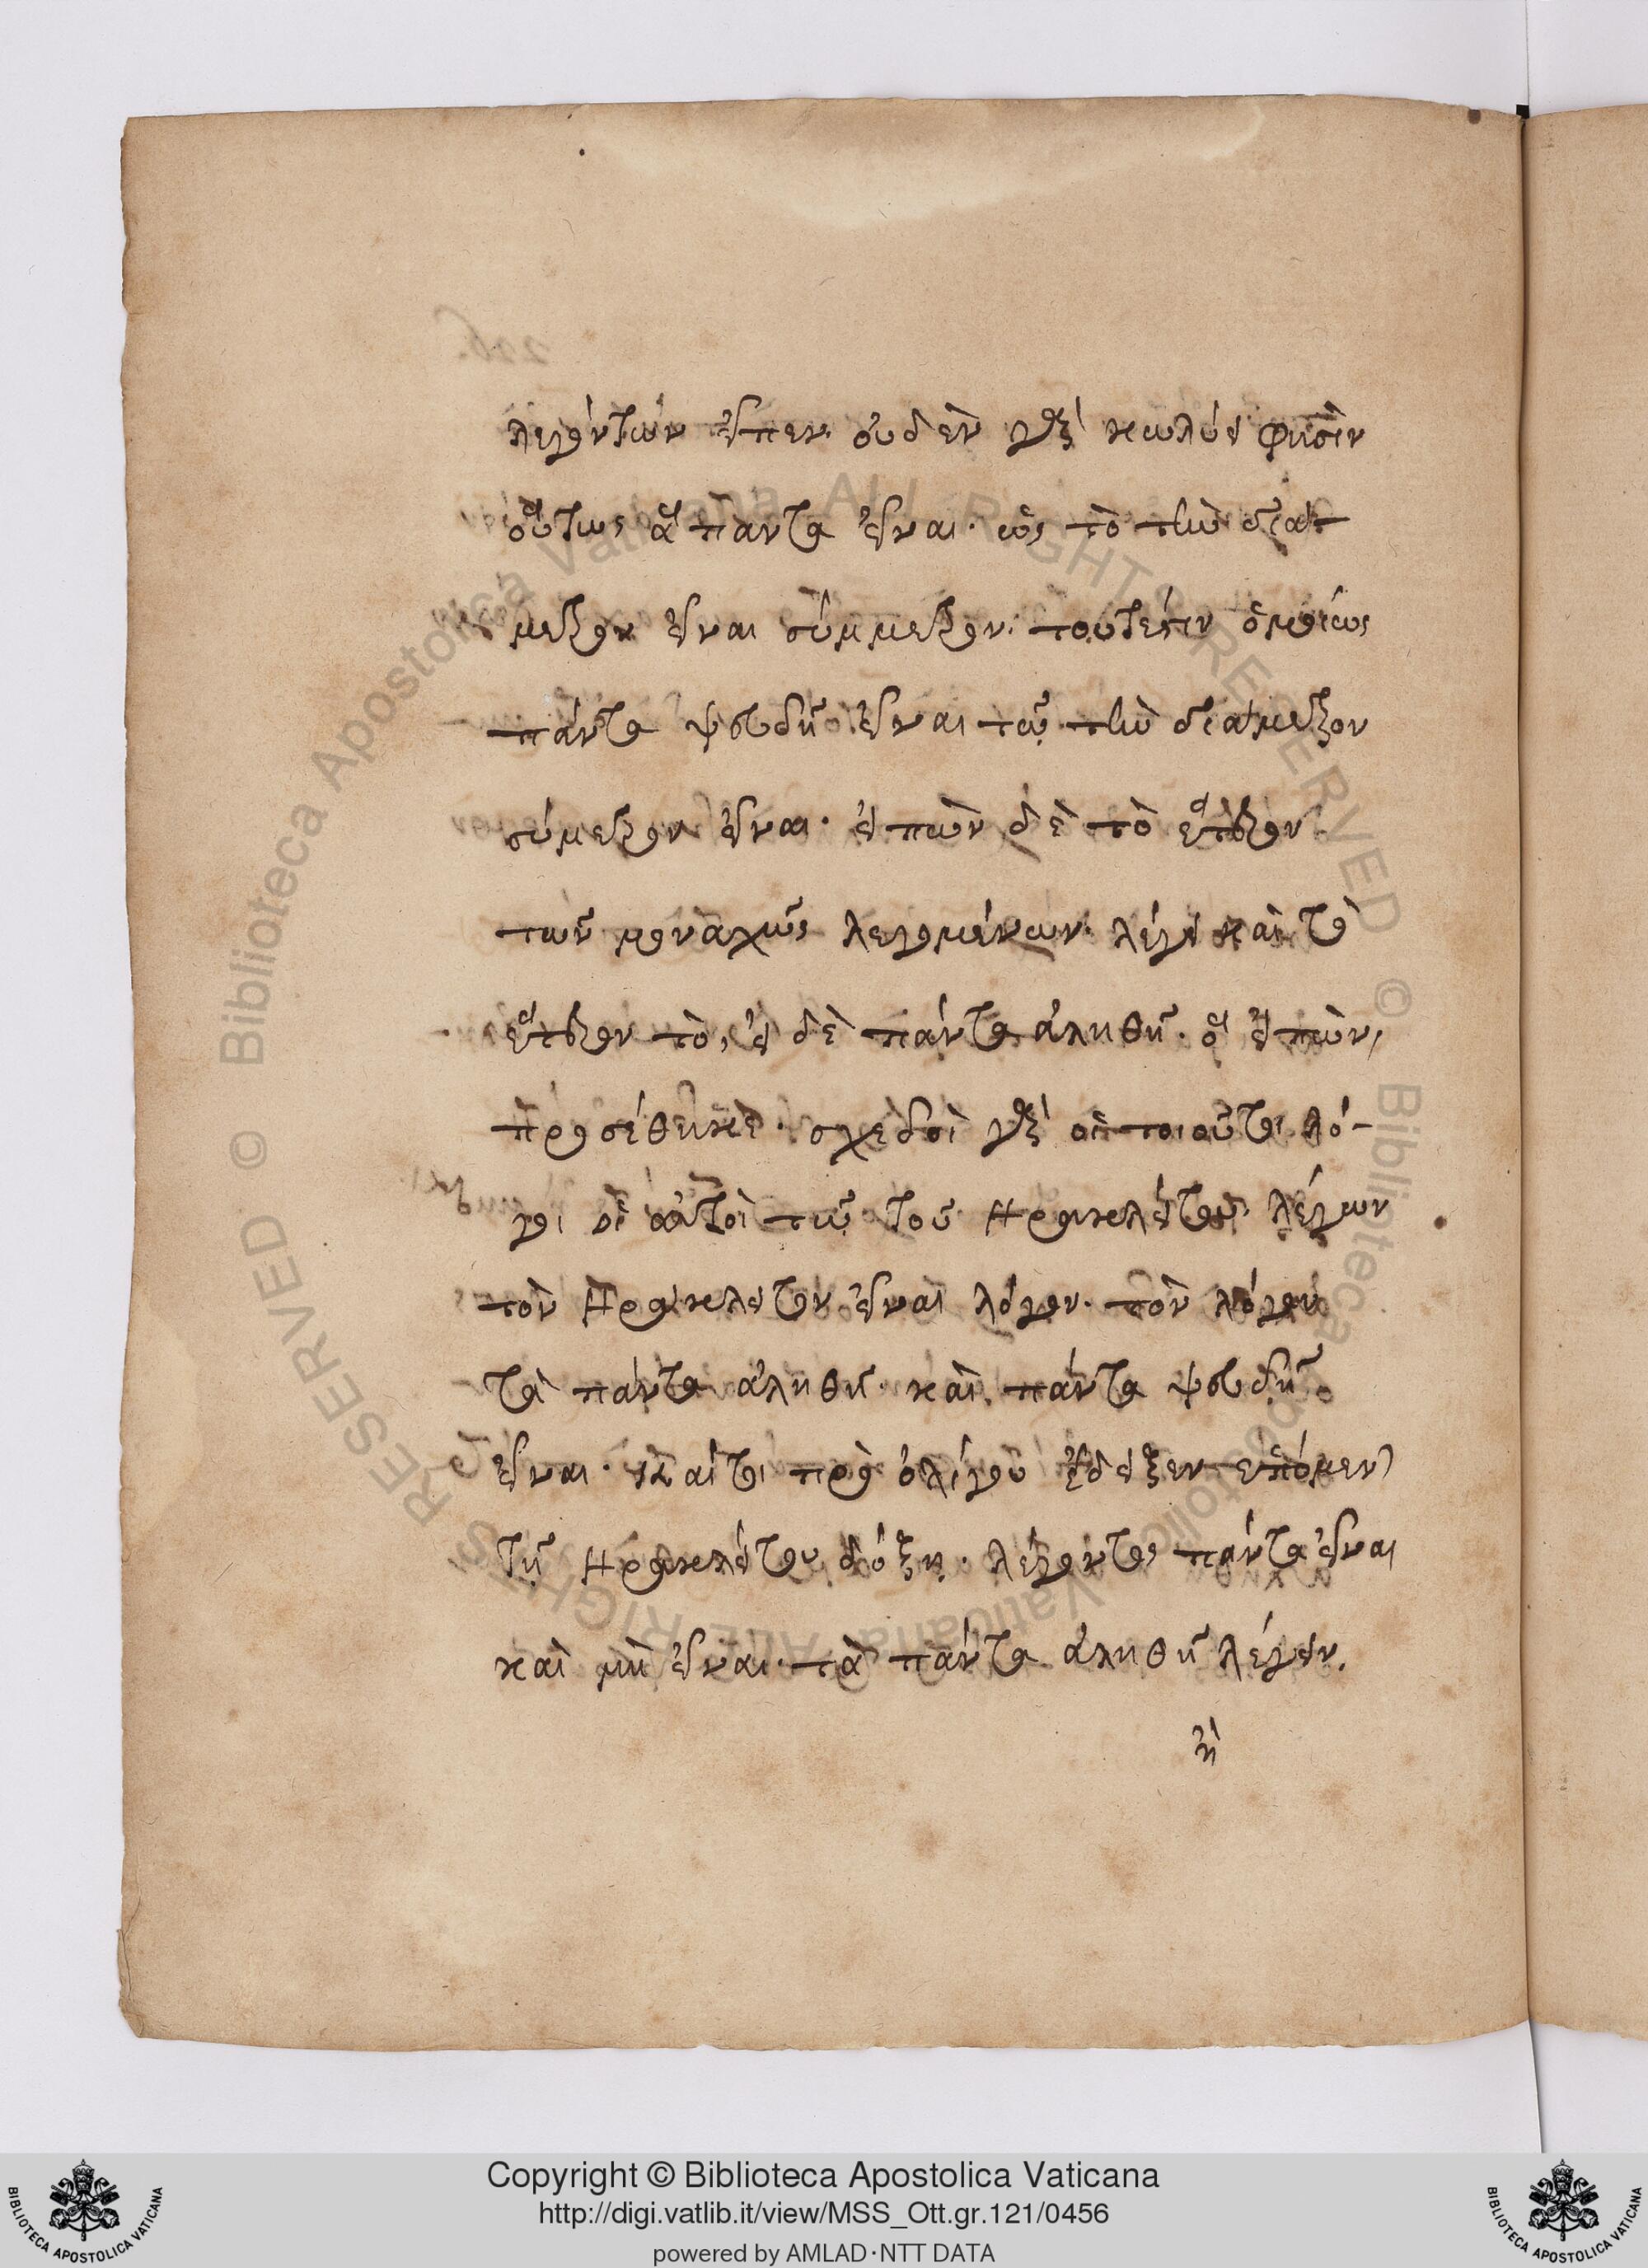 λεγόντων εἶπεν. οὐδὲν γὰρ κωλύει φησὶν
οὕτως ἅπαντα εἶναι· ὡς τὸ τὴν διά-
μετρον εἶναι σύμμετρον. τουτέστιν ὁμοίως
πάντα ψευδῆ εἶναι τῷ τὴν διάμετρον
σύμετρον εἶναι· εἰπὼν δὲ τὸ ἕτερον
τῶν μοναχῶς λεγομένων. λέγει καὶ τὸ
ἕτερον τὸ, εἰ δὲ πάντα ἀληθῆ· ὃ εἰπὼν,
προσέθηκε· σχεδοὶ γὰρ οἱ τοιοῦτοι λό-
γοι οἱ αὐτοὶ τῷ τοῦ Ηρακλείτου. λέγων
τὸν Ηράκλειτον εἶναι λόγον. τὸν λόγον
τὰ πάντα ἀληθῆ· καὶ πάντα ψευδῆ
εἶναι. καίτοι πρὸ ὀλίγου ἔδειξεν ἑπόμεν
τῇ Ηρακλείτου δόξῃ. λέγοντος πάντα εἶναι
καὶ μὴ εἶναι. τὰ πάντα ἀληθῆ λέγειν.
ἢ
Copyright © Biblioteca Apostolica Vaticana
http://digi.vatlib.it/view/MSS_Ott.gr.121/0456
powered by AMLAD·NTT DATA